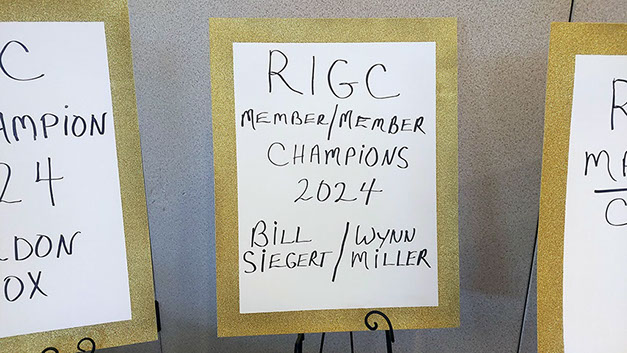 C
AMPION
24
LDON
OX
RIGC
MEMBER/MEMBER
CHAMPIONS
2024
BILL / WYNN
SIEGERT / MILLER
R
MA
C